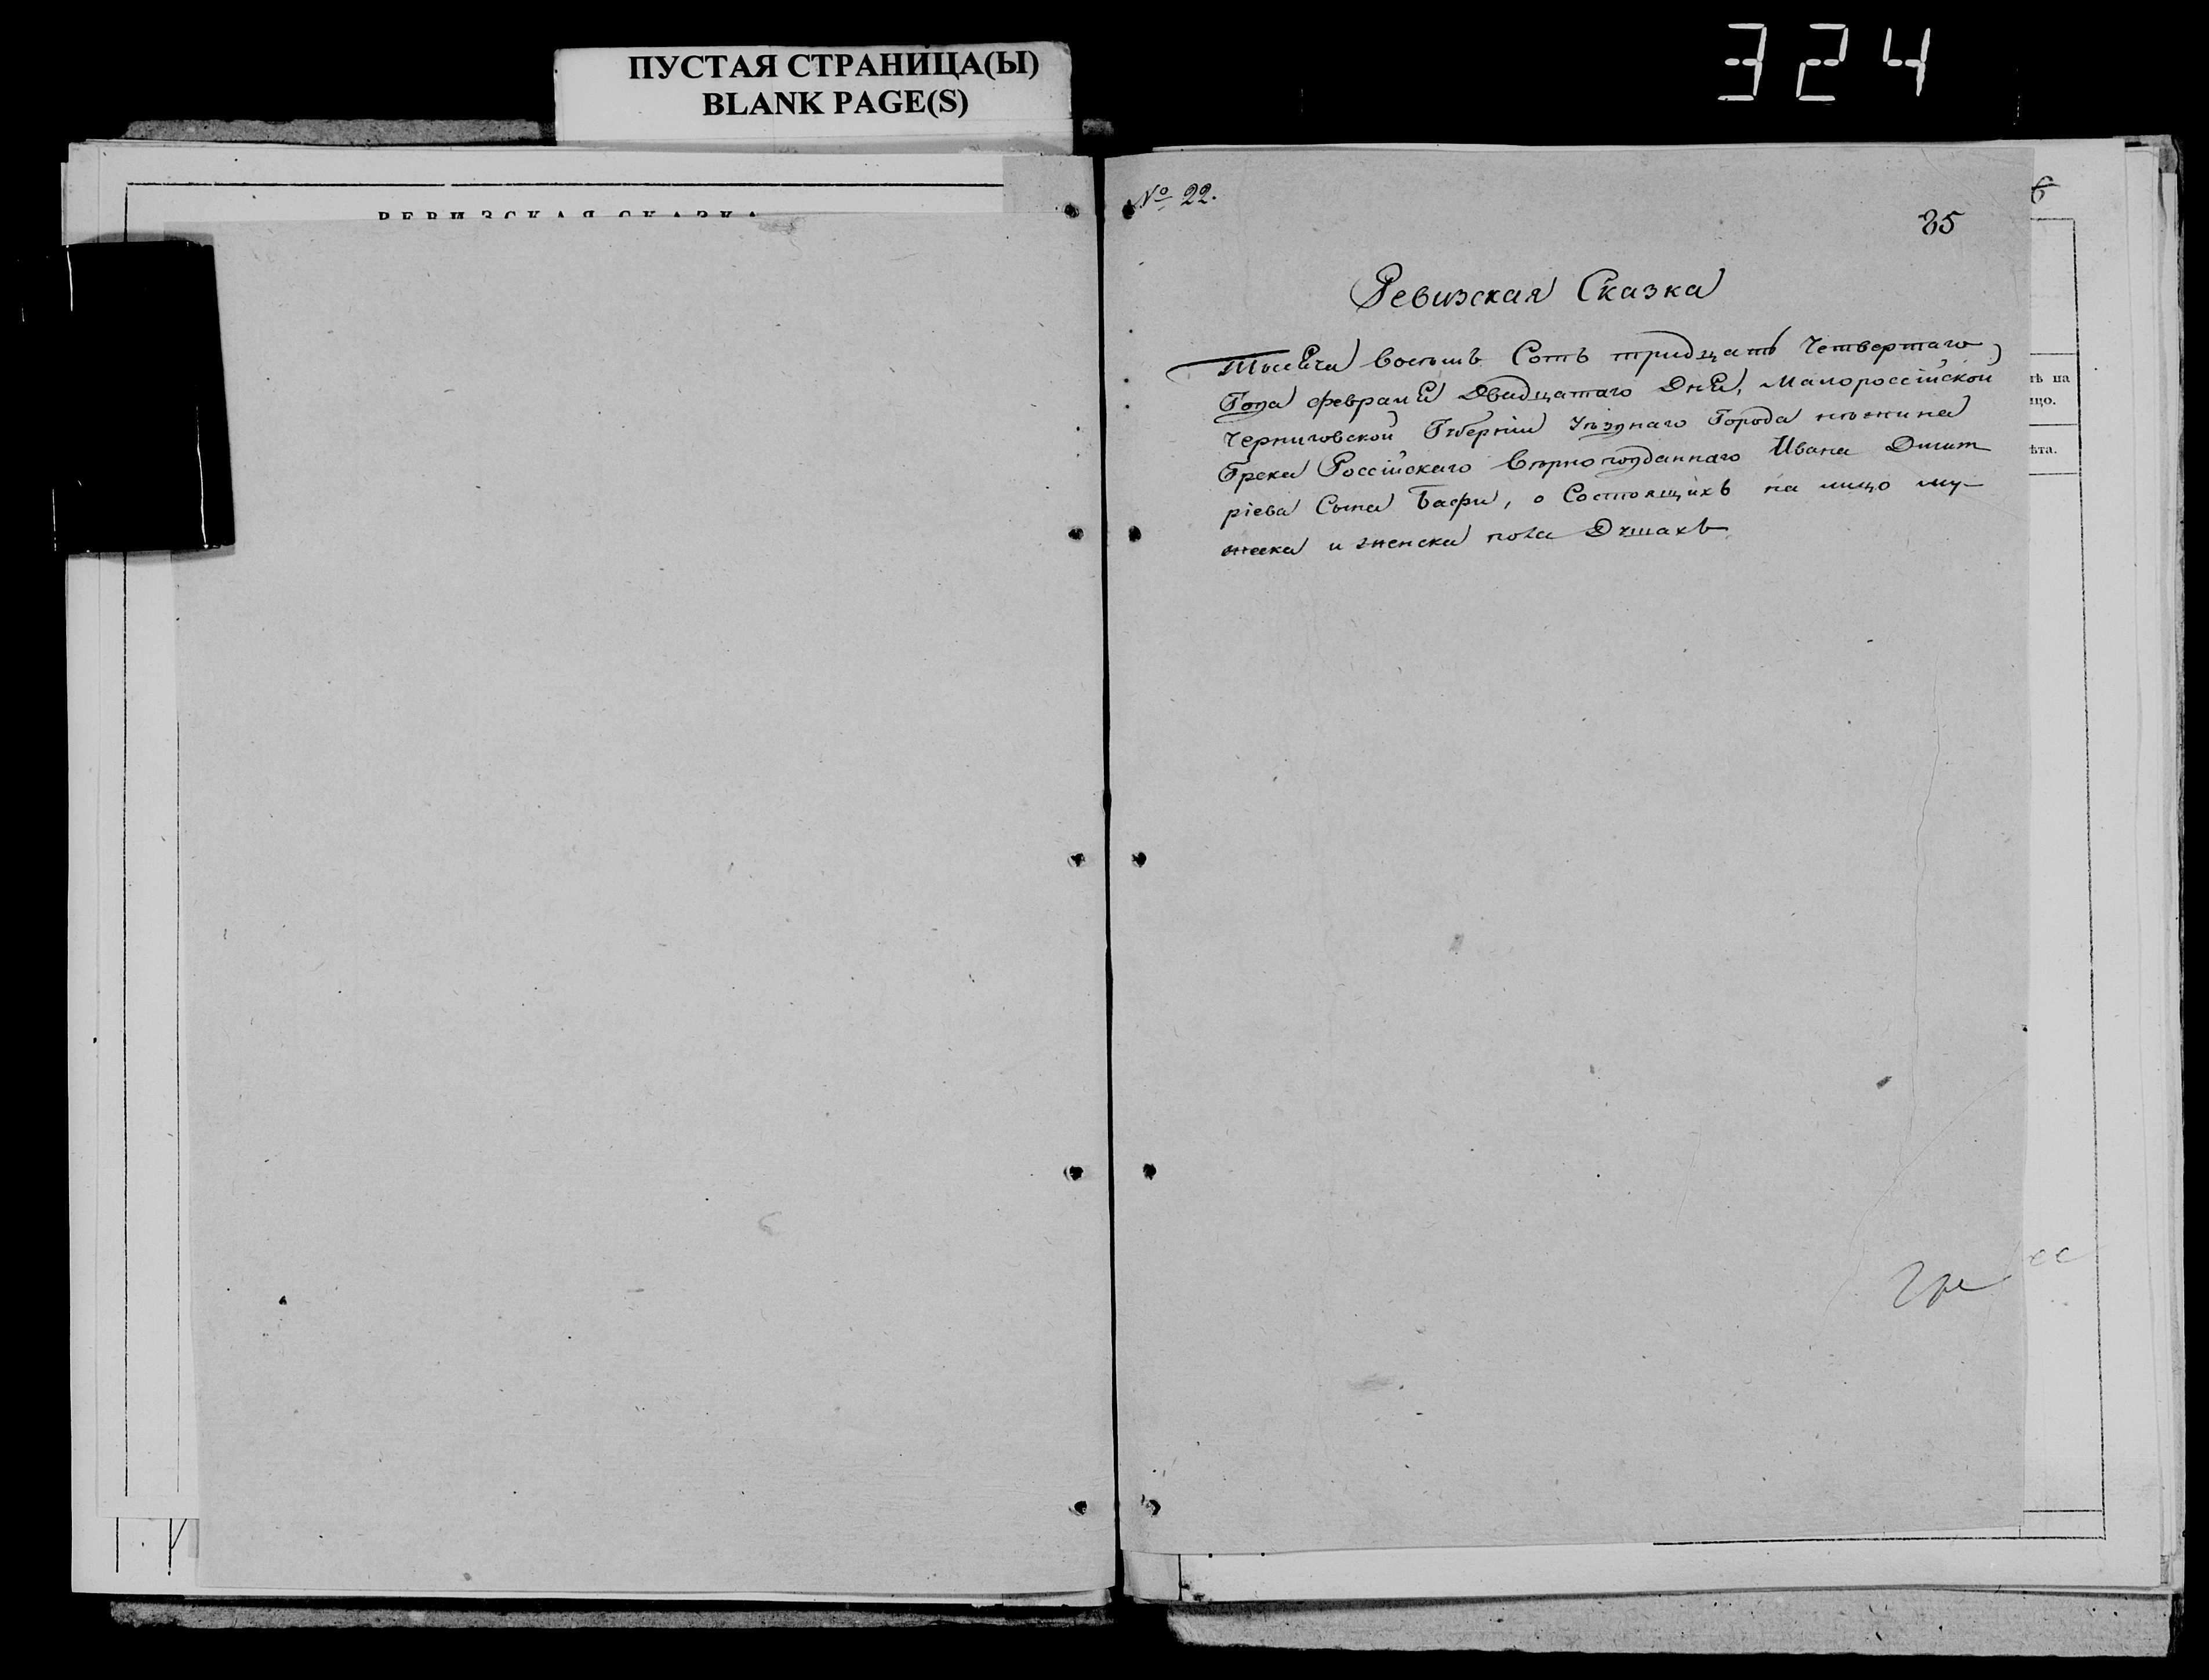 ПУСТАЯ СТРАНИЦА(Ы)
BLANK PAGE(S)
324
РЕВИЗСКАЯ СКАЗКА
№ 22.
85
Ревизская Сказка
Тысяча восемь Сотъ тридцать Четвертаго
Года февраля Двадцатаго Дня, Малороссійской
Черниговской Губерніи Уѣзднаго Города нѣжина
Грека Россійскаго вѣрноподданнаго Ивана Дмит
ріева Сына Бафи, о Состоящихъ на лицо му-
жеска и женска пола Душахъ
ѣ на
цо.
ѣта.
Гре